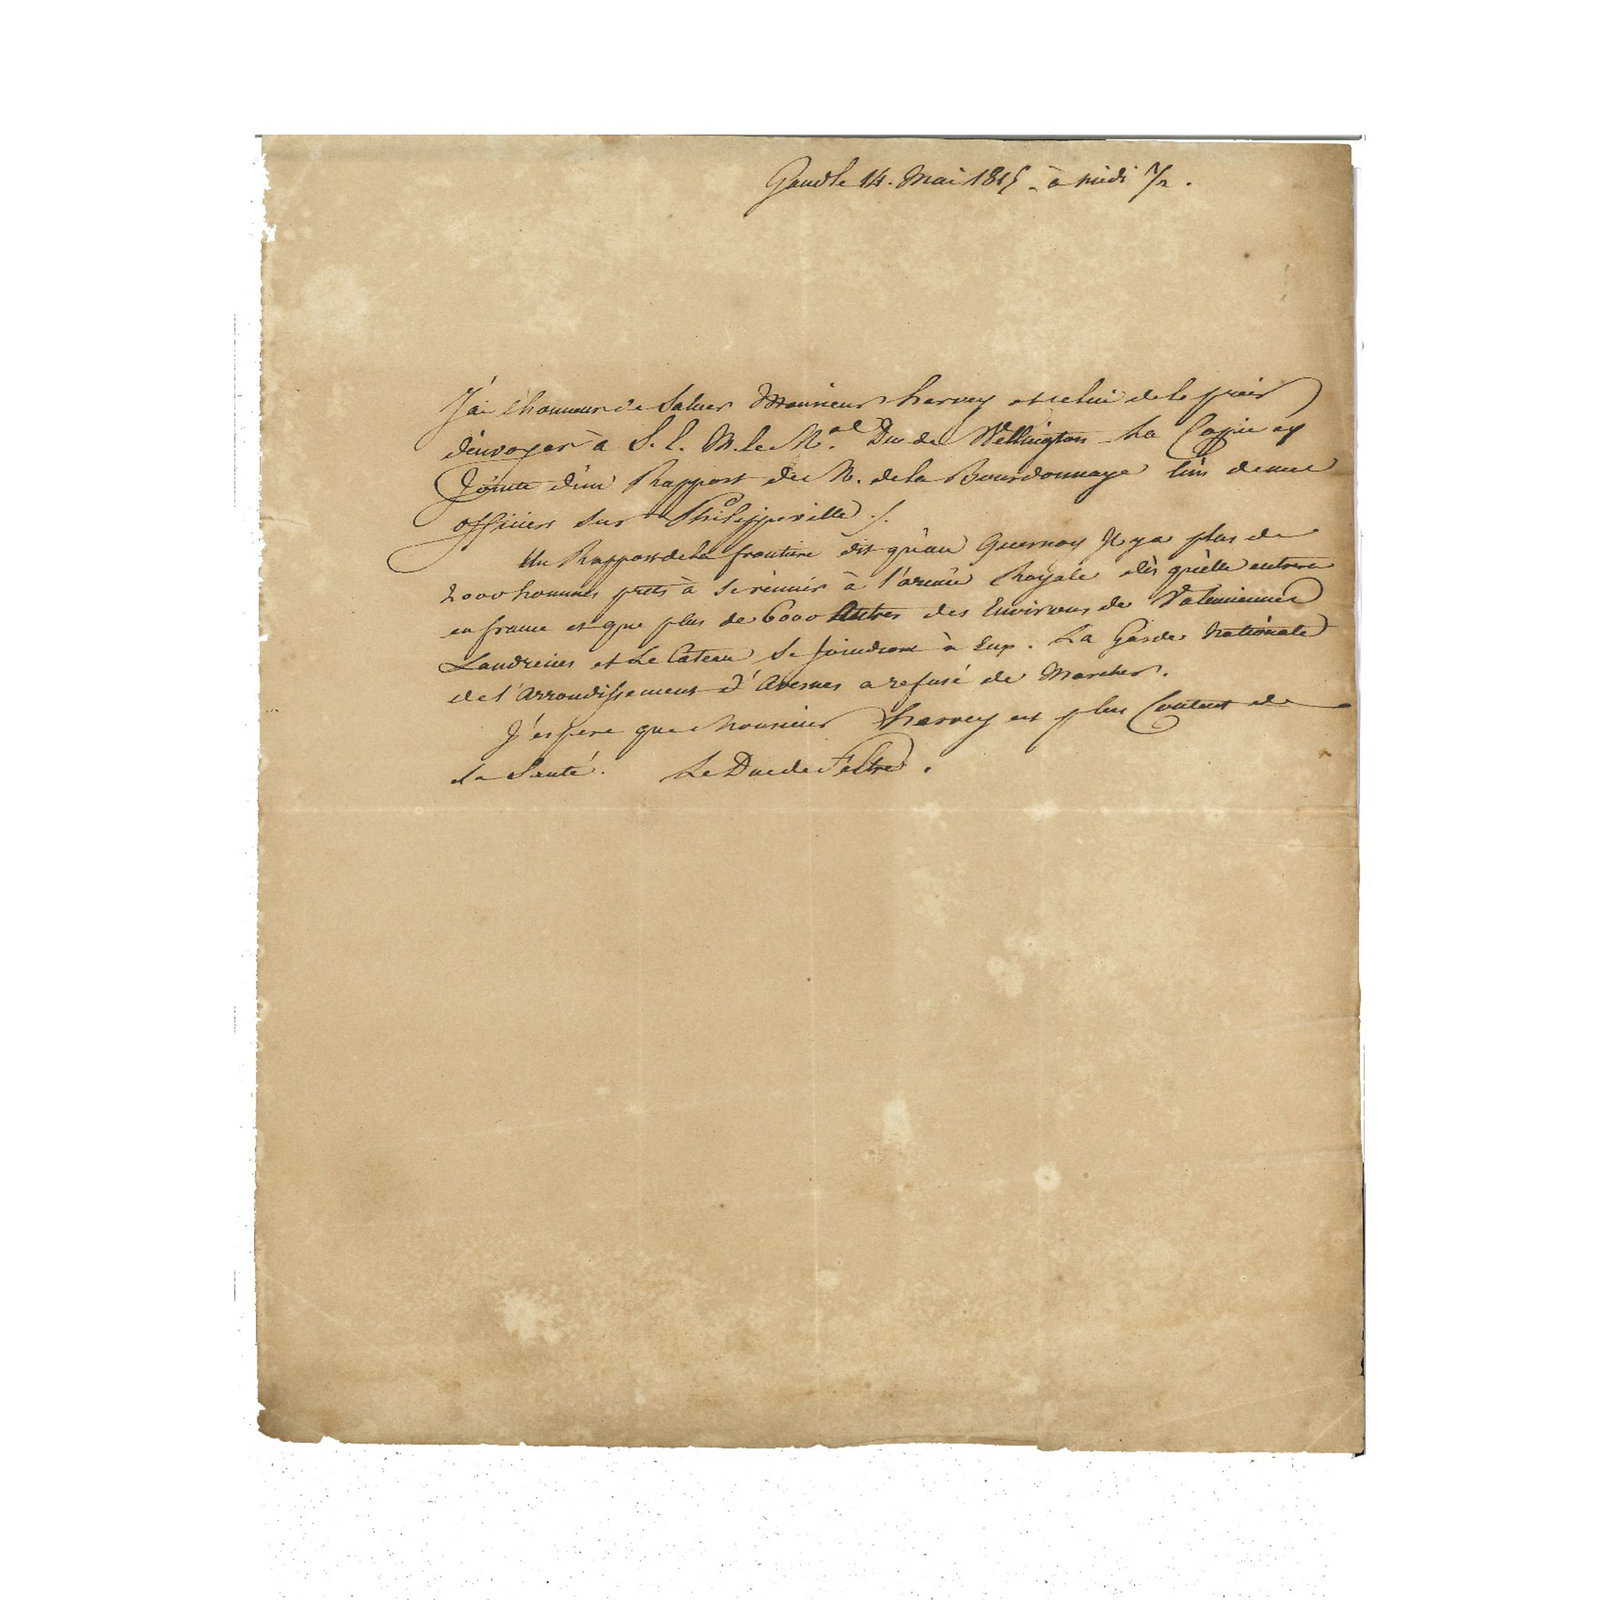 Gand le 14. Mai 1815 - à midi 1/2.
J'ai l'honneur de Saluer Monsieur hervey et celui de le prier
d'envoyer à S. E. M. le M.al Duc de Wellington La Copie cy
Jointe d'un Rapport de M. de la Bourdonnaye l'un de mes
officiers sur Philippeville ./.
Un Rapport de la frontiere dit qu'au Quesnoy Il y a plus de
2000 hommes prets à se réunir à l'armée Royale dès qu'elle entrera
en france et que plus de 6000 Autres des Environs de Valenciennes
Landrecies et Le Cateau Se Joindront à Eux. La Garde Nationale
de l'Arrondissement d'Avesnes a refusé de Marcher.
J'espere que Monsieur hervey est plus Content de
Sa Santé. Le Duc de Feltre.